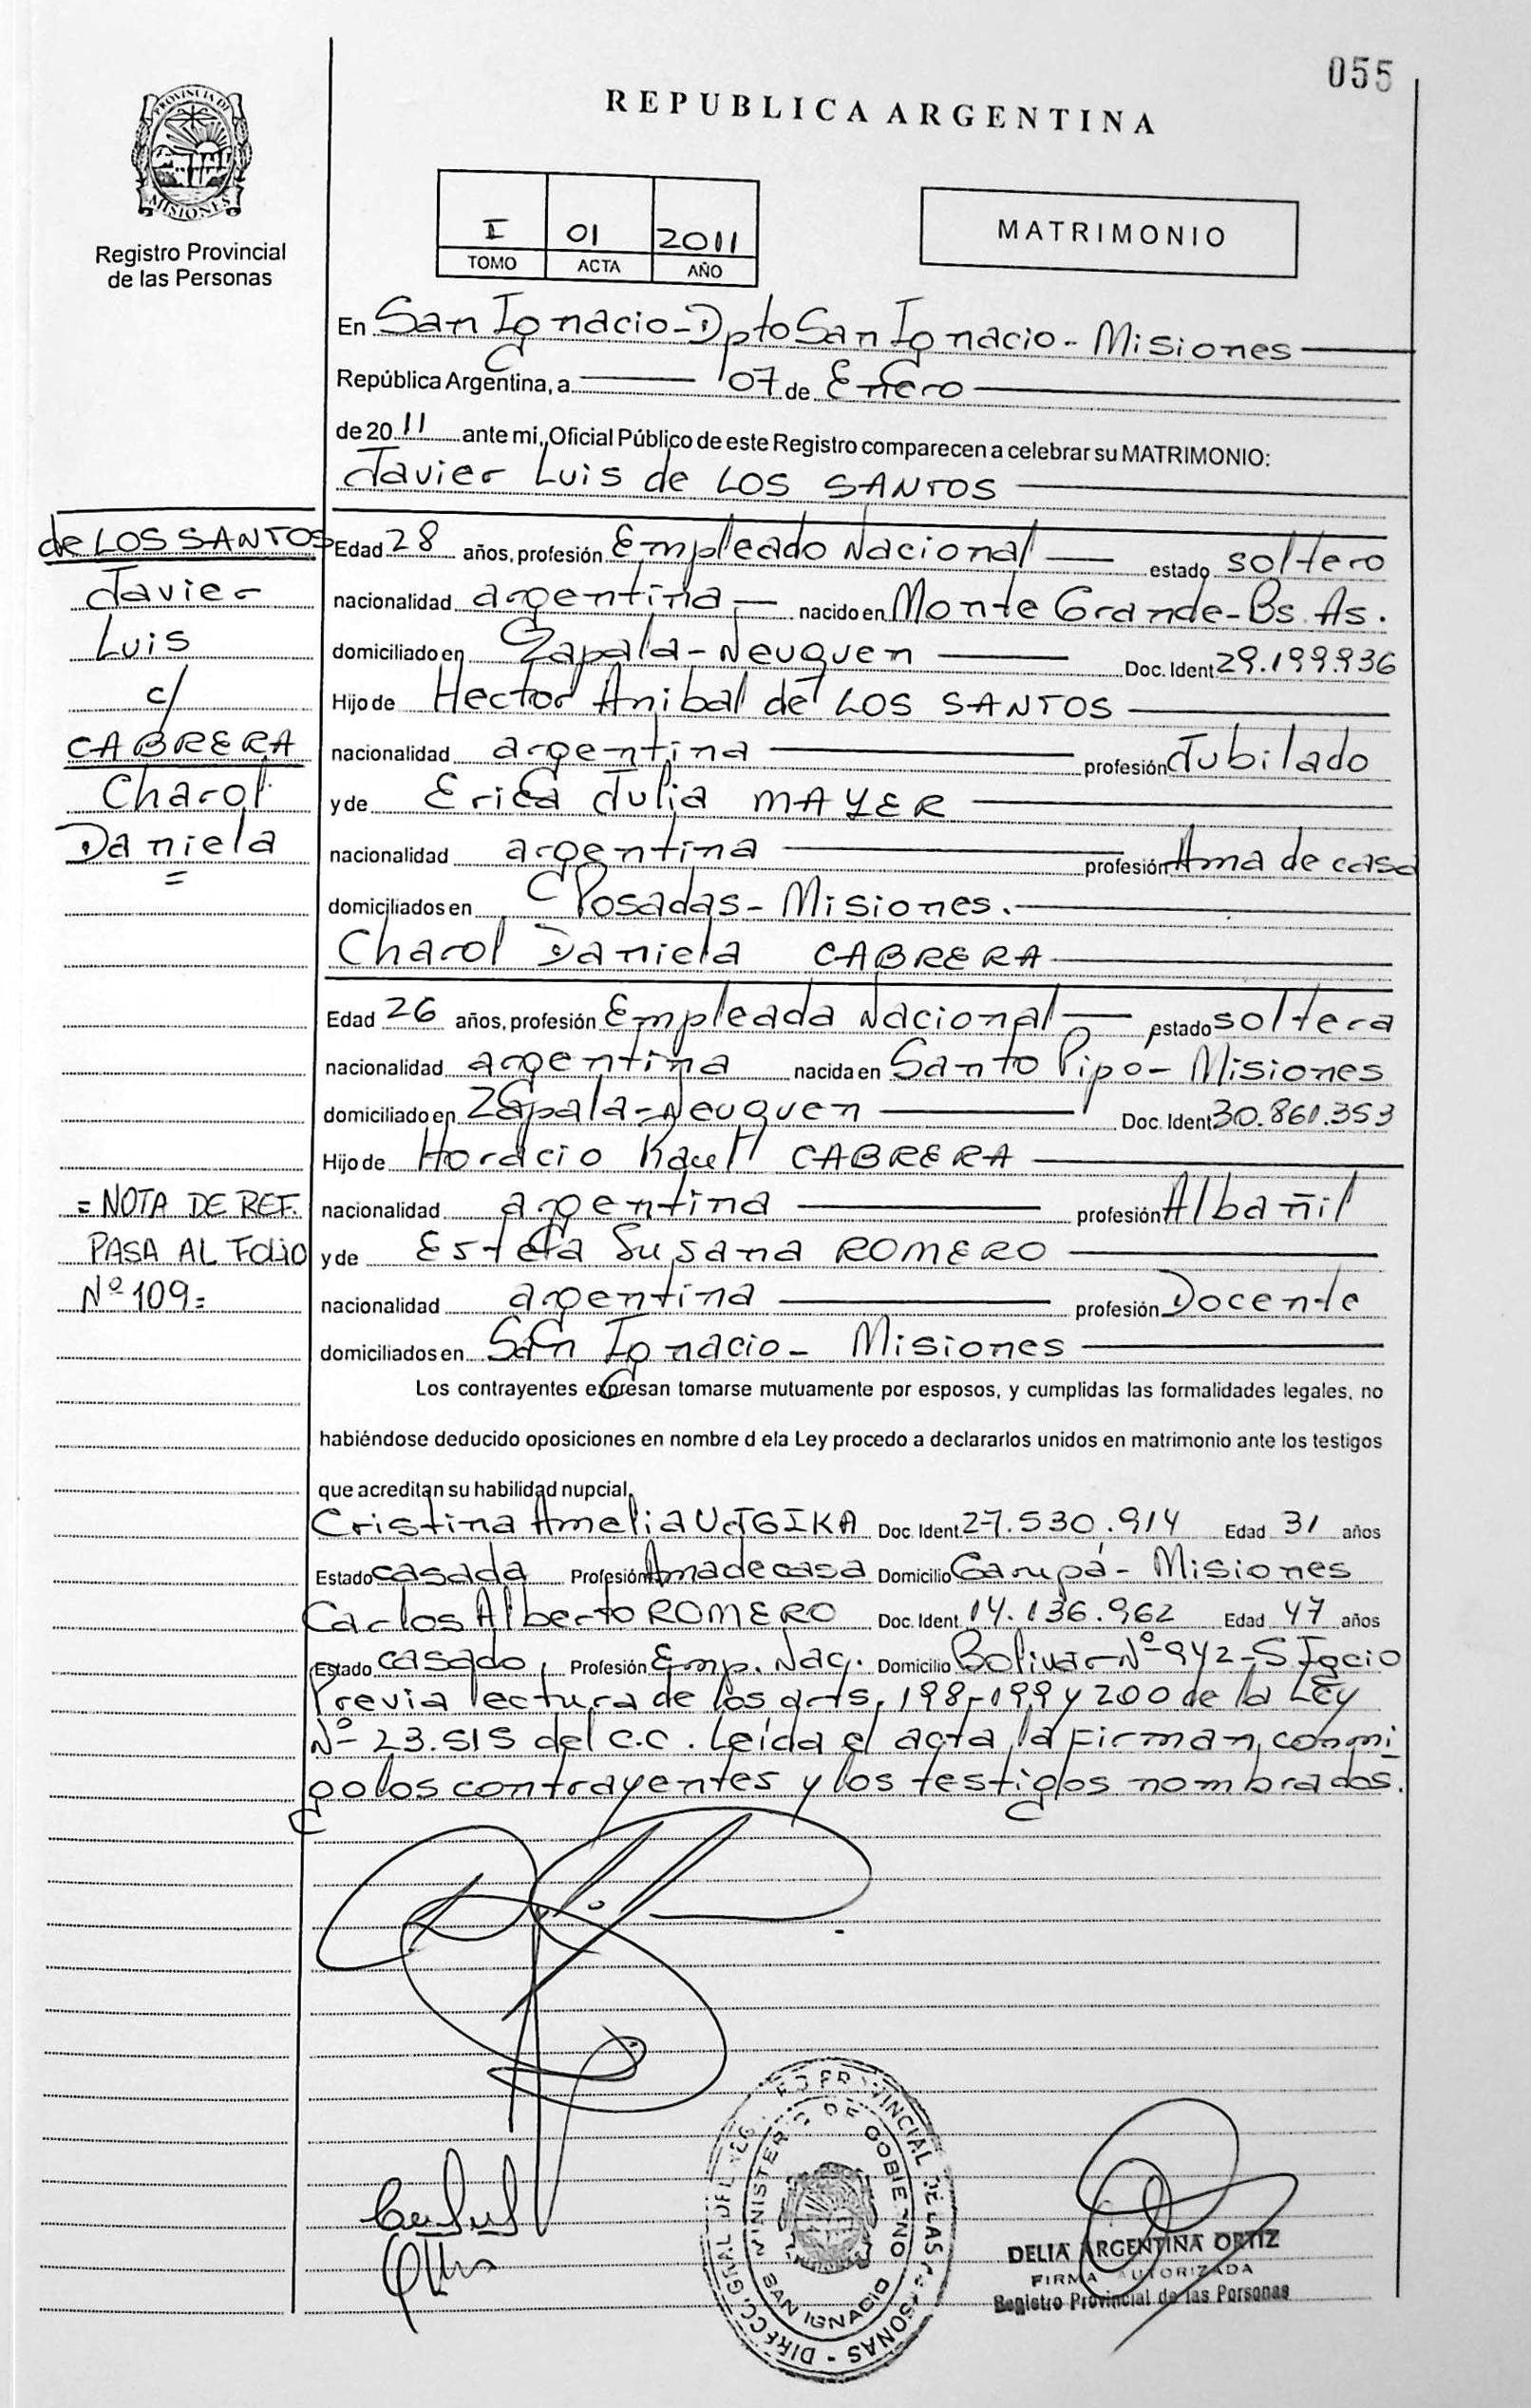 055
REPUBLICA ARGENTINA
PROVINCIA DE
MISIONES
Registro Provincial
de las Personas
I 01 2011
TOMO ACTA AÑO
MATRIMONIO
En San Ignacio - Dpto San Ignacio - Misiones
República Argentina, a 07 de Enero
de 20 11 ante mi, Oficial Público de este Registro comparecen a celebrar su MATRIMONIO:
Javier Luis de LOS SANTOS
de LOS SANTOS
Javier
Luis
c/
CABRERA
Charol
Daniela
=
Edad 28 años, profesión Empleado Nacional estado soltero
nacionalidad argentina nacido en Monte Grande - Bs. As.
domiciliado en Zapala - Neuquen Doc. Ident 29.199.936
Hijo de Hector Anibal de LOS SANTOS
nacionalidad argentina profesión Jubilado
y de Erica Julia MAYER
nacionalidad argentina profesión Ama de casa
domiciliados en Posadas - Misiones.
Charol Daniela CABRERA
Edad 26 años, profesión Empleada Nacional estado soltera
nacionalidad argentina nacida en Santo Pipó - Misiones
domiciliado en Zapala - Neuquen Doc. Ident 30.861.353
Hijo de Horacio Raul CABRERA
nacionalidad argentina profesión Albañil
y de Estela Susana ROMERO
nacionalidad argentina profesión Docente
domiciliados en San Ignacio - Misiones
= NOTA DE REF.
PASA AL FOLIO
Nº 109 =
Los contrayentes expresan tomarse mutuamente por esposos, y cumplidas las formalidades legales, no
habiéndose deducido oposiciones en nombre d ela Ley procedo a declararlos unidos en matrimonio ante los testigos
que acreditan su habilidad nupcial,
Cristina Amelia UJGIKA Doc. Ident 27.530.914 Edad 31 años
Estado casada Profesión Ama de casa Domicilio Garupá - Misiones
Carlos Alberto ROMERO Doc. Ident 14.136.962 Edad 47 años
Estado casado, Profesión Emp. Nac. Domicilio Bolivar Nº 942 - S Igcio
Previa lectura de los arts, 198-199 y 200 de la Ley
Nº 23.515 del C.C. Leída el acta, la firman, conmi
go los contrayentes y los testigos nombrados.
MINISTERIO DE GOBIERNO
SAN IGNACIO
PROVINCIAL DE LAS PERSONAS - DIRECC. GRAL DEL
DELIA ARGENTINA ORTIZ
FIRMA AUTORIZADA
Registro Provincial de las Personas